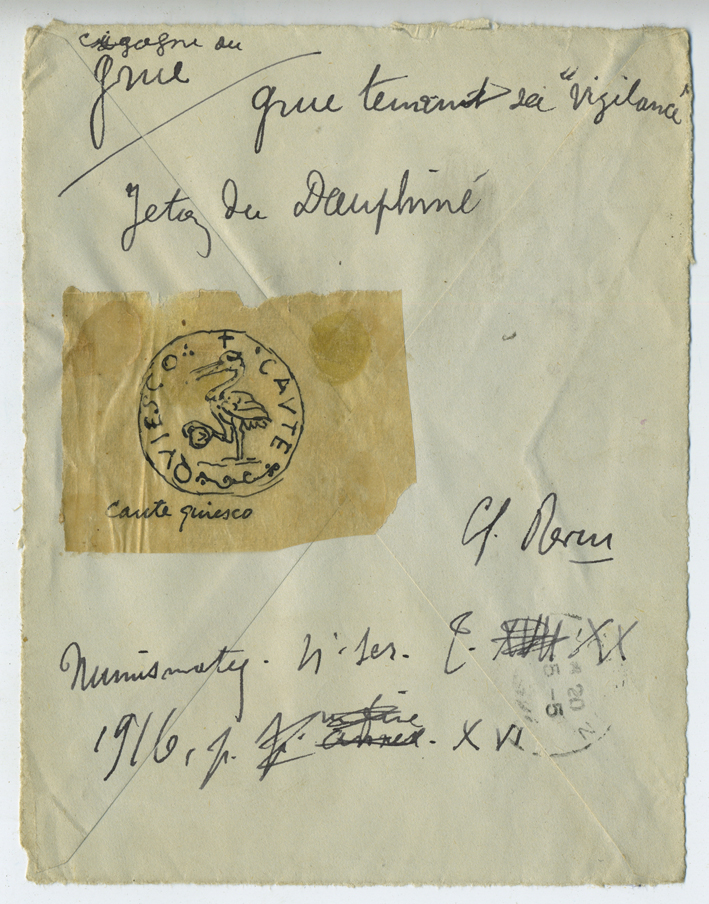 cigogne ou
grue
grue tenant sa "vigilance"
Jeton du Dauphiné
+ CAVTE QVIESCO
caute quiesco
Cf. Revue
Numismatq. 4e Ser. T. XX
1916, p. XVI.
20
5-5